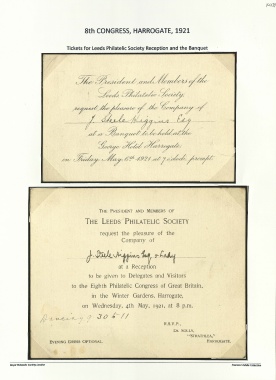 8th CONGRESS, HARROGATE, 1921
Tickets for Leeds Philatelic Society Reception and the Banquet
The President and Members of the
Leeds Philatelic Society,
request the pleasure of the Company of
J. Steele Higgins Esq
at a Banquet to be held at the
George Hotel, Harrogate
on Friday May 6th 1921 at 7 o'clock prompt.
THE PRESIDENT AND MEMBERS OF
THE LEEDS PHILATELIC SOCIETY
request the pleasure of the
Company of
J. Steele Higgins Esq & Lady
at a Reception
to be given to Delegates and Visitors
to the Eighth Philatelic Congress of Great Britain,
in the Winter Gardens, Harrogate,
on Wednesday, 4th May, 1921, at 8 p.m.
Dancing
R.S.V.P.,
EVENING DRESS OPTIONAL.